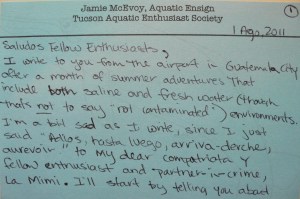 Jamie McEvoy, Aquatic Ensign
Tucson Aquatic Enthusiast Society
1
1 Ago, 2011
Saludos Fellow Enthusiasts,
I write to you from the airport in Guatemala City
after a month of summer adventures that
include both saline and fresh water (though
thats not to say "not contaminated") environments.
I'm a bit sad as I write, since I just
said "Adios, hasta luego, arriva-derche,
aurevoir" to my dear compatriota y
fellow enthusiast and partner-in-crime,
La Mimi. I'll start by telling you about